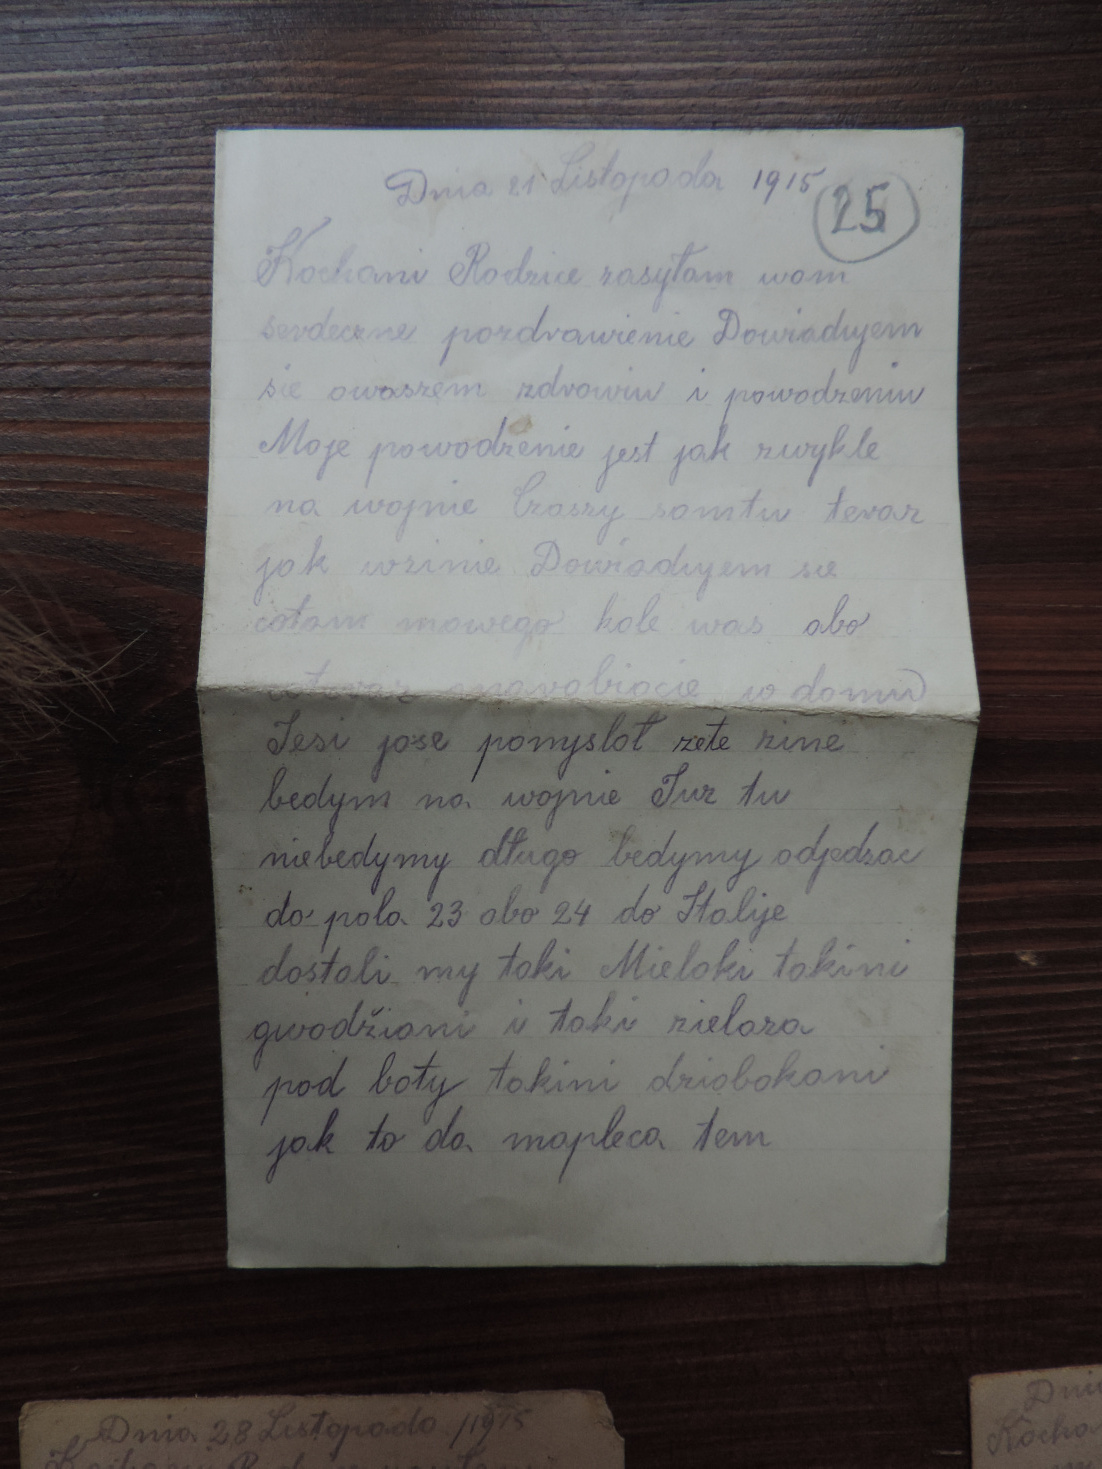 Dnia 21 Listopada 1915
25
Kochani Rodzice zasyłam wam
serdeczne pozdrawienie Dowiadujem
sie owaszem zdrowiu i powodzeniu
Moje powodzenie jest jak zwykle
na wojnie Czaszy somtu teraz
jak wzimie Dowiadujem sie
cotam nowego kole was abo
w domu
Jesi jose pomysloł zete zime
bedym na wojnie Juz tu
niebedymy długo bedymy odjedzac
do pola 23 abo 24 do Italije
dostali my taki Mieloki takimi
gwodžiami i taki zielaza
pod boty takimi dziobokami
jak to do mapleca tem
Dnia 28 Listopada 1915
Dnia